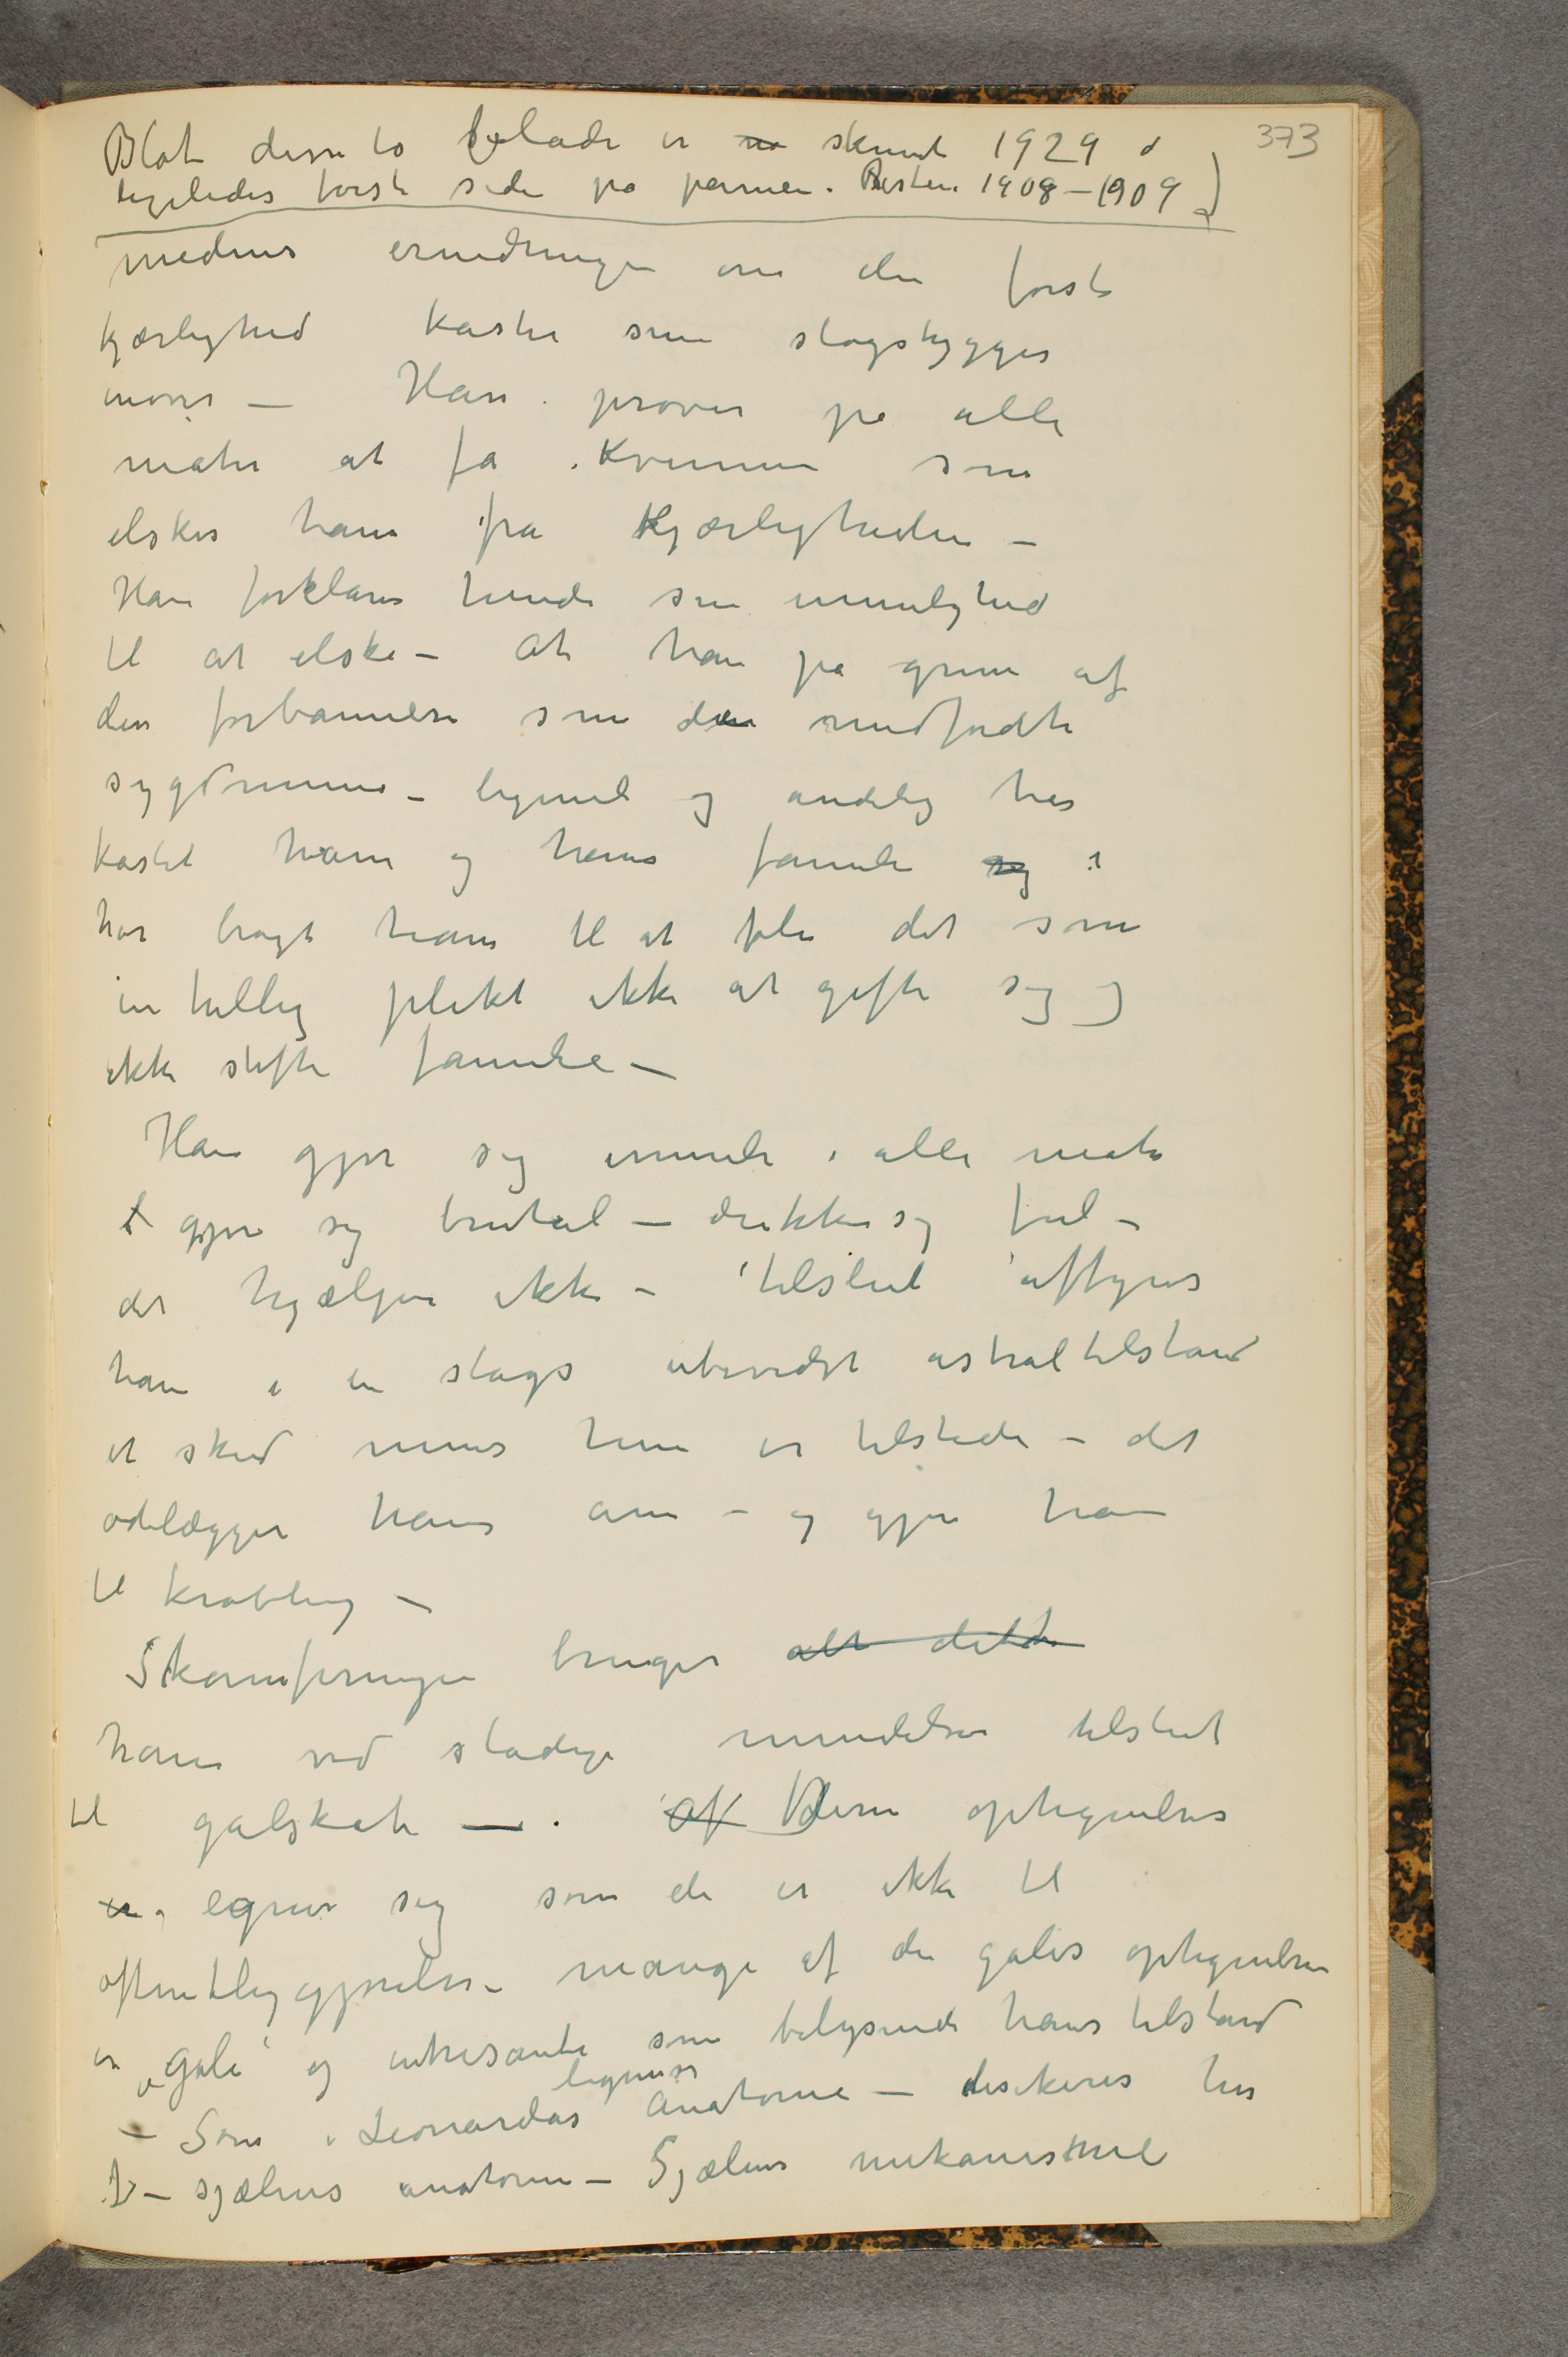 373
Blot disse to blade er skrevet 1929 o
ligeledes første side på permen. Resten 1908–1909)
medens erindringen om den første
kjærlighed kaster sine slagskygger
inover – Han prøver på alle
måter at få Kvinnen som
elsker ham fra Kjærligheden –
Han forklarer hende sin umulighed
til at elske – At han på grunn af
den forbannelse som den medfødte
sygdommene – legemlig og åndelig har
kastet ham og hans familie i
har bragt ham til at føle det som
en hellig plikt ikke at gifte sig og
ikke stifte familie –
Han gjør sig umulig i alle måter
gjør sig brutal – drikker sig ful –
det hjælper ikke – tilslut affyres
han i en slags ubevidst astraltilstand
et skud mens hun er tilstede – det
ødelægger hans arm – og gjør ham
til krøbling –
Skamferingen bringer alt dette
ham ved stadige mindelser tilslut
til galskab –. Af Disse optegnelser
er egner sig som de er ikke til
offentliggjørelse – mange af den gales optegnelser
er „gale“ og intresante som belysende hans tilstand
legemets
– Som i Leonardos Anatomi – disikeres her
– sjælens anatomi – Sjælens mekanisme